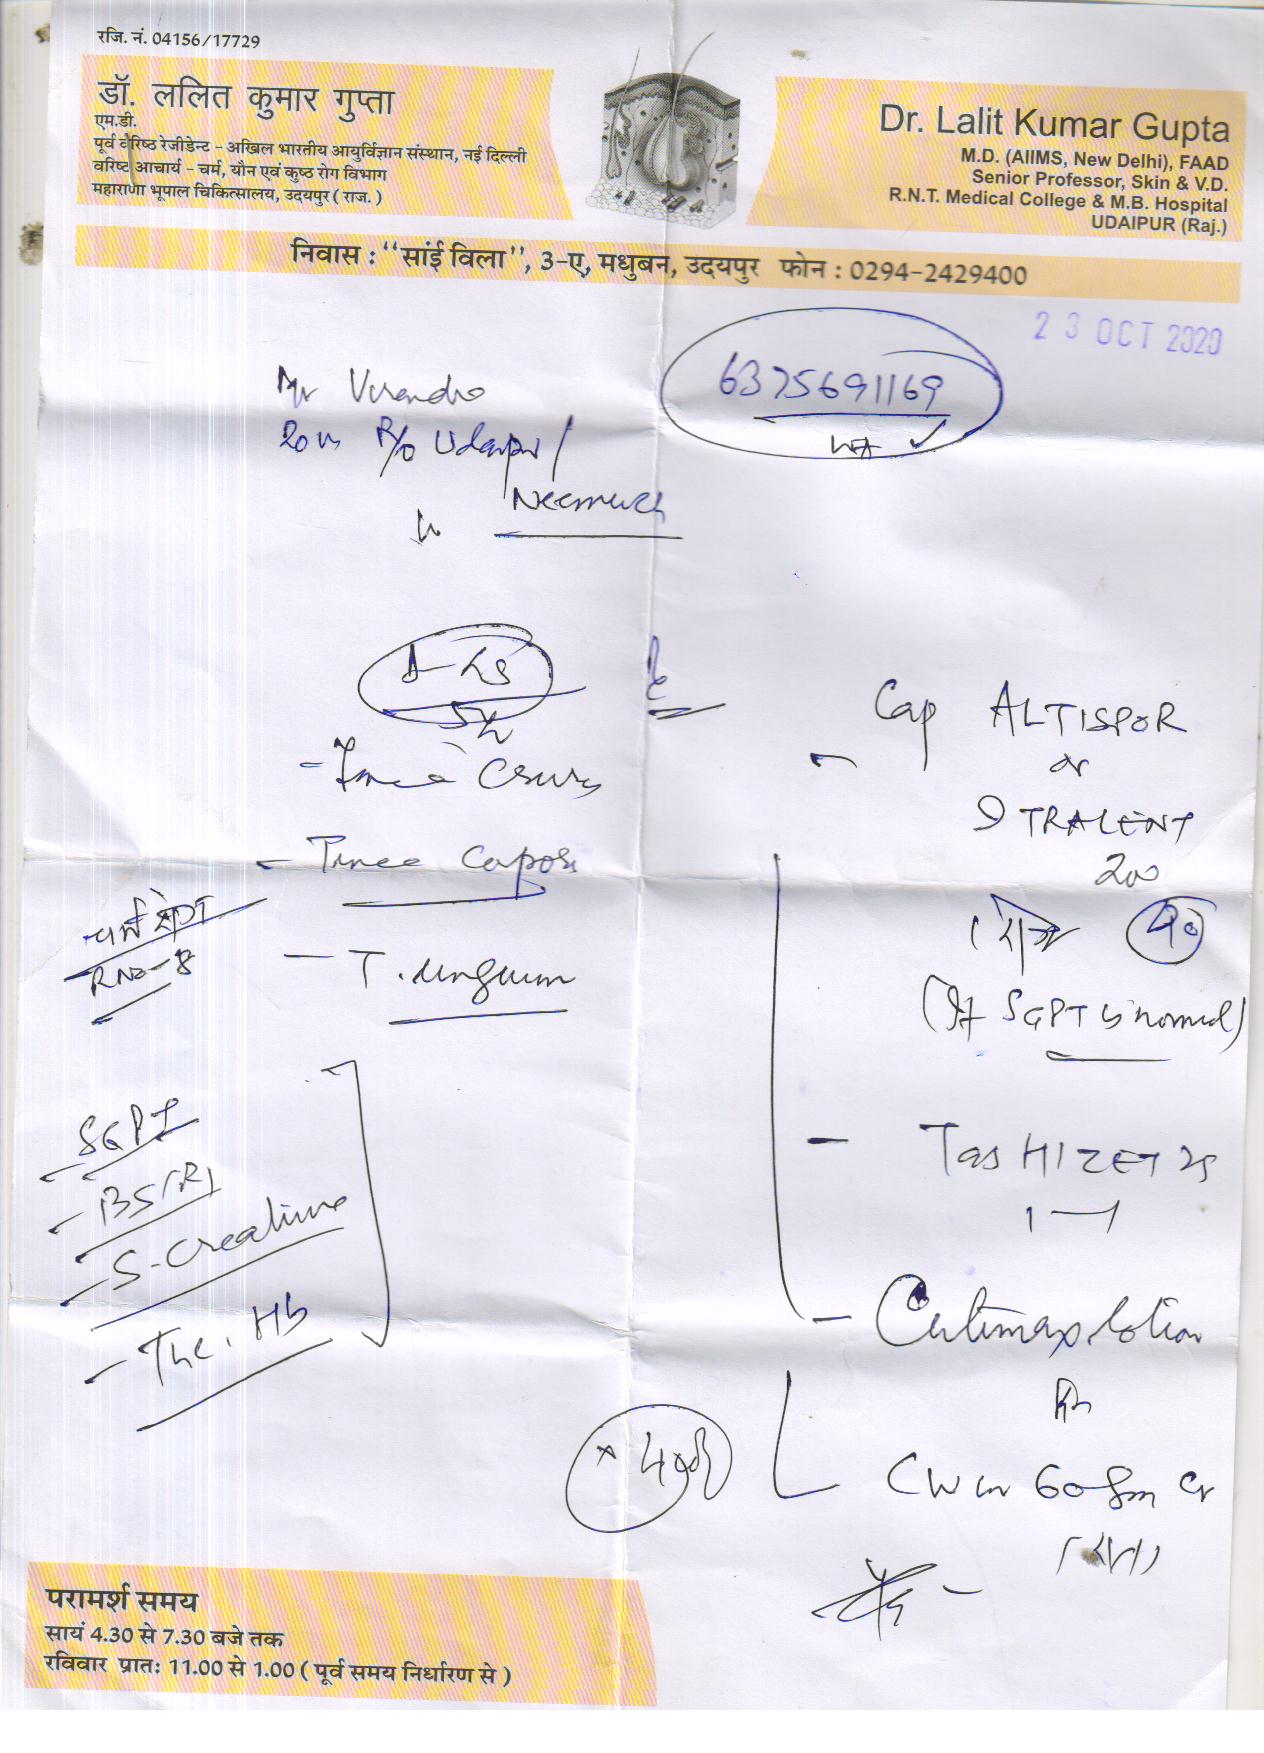 रजि. नं. 04156/17729
डॉ. ललित कुमार गुप्ता
एम.डी.
पूर्व वरिष्ठ रेजीडेन्ट - अखिल भारतीय आयुर्विज्ञान संस्थान, नई दिल्ली
वरिष्ट आचार्य - चर्म, यौन एवं कुष्ठ रोग विभाग
महाराणा भूपाल चिकित्सालय, उदयपुर ( राज. )
Dr. Lalit Kumar Gupta
M.D. (AIIMS, New Delhi), FAAD
Senior Professor, Skin & V.D.
R.N.T. Medical College & M.B. Hospital
UDAIPUR (Raj.)
निवास : “सांई विला”, 3-ए, मधुबन, उदयपुर फोन : 0294-2429400
23 OCT 2020
6375691169
Mr Virendra
R/o Udaipur /
Neemuch
Tinea
Tinea
T. unguium
चर्म रोग
RNo-8
SGPT
BS(R)
S. Creatinine
Hb
Cap ALTISPOR
or
ITRALENT
200
1 रोज 40
(If SGPT is normal)
Tab HIZET 25
1 — 1
Cutimax lotion
60 gm
परामर्श समय
सायं 4.30 से 7.30 बजे तक
रविवार प्रातः 11.00 से 1.00 ( पूर्व समय निर्धारण से )